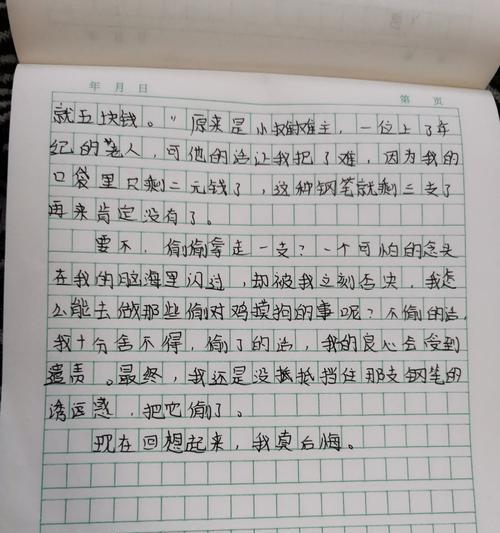 年 月 日 第 页
就五块钱。"原来是小摊摊主，一位上了年
纪的老人，可他的话让我把了难，因为我的
口袋里只剩二元钱了，这种钢笔就剩三支了
再来肯定没有了。
要不，偷偷拿走一支？一个可怕的念头
在我的脑海里闪过，却被我立刻否决，我怎
么能去做那些偷对鸡摸狗的事呢？不偷的话，
我十分舍不得，偷了的话，我的良心会受到
遣责。最终，我还是没抵抵挡住那支钢笔的
诱惑，把它偷了。
现在回想起来，我真后悔。